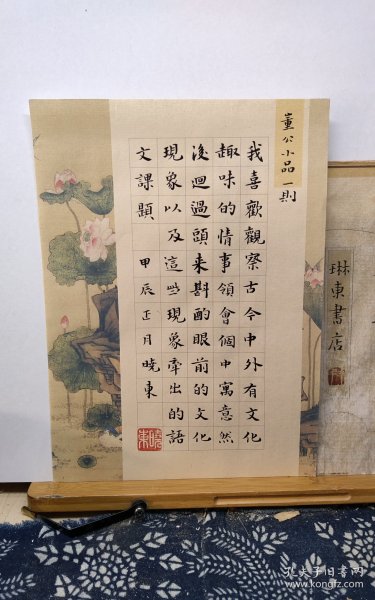 董公小品一則
我喜歡觀察古今中外有文化
趣味的情事領會個中寓意然
後迴過頭来斟酌眼前的文化
現象以及這些現象牽出的語
文課題 甲辰正月曉東
曉東
琳東書店
孔夫子旧书网
www.kongfz.com